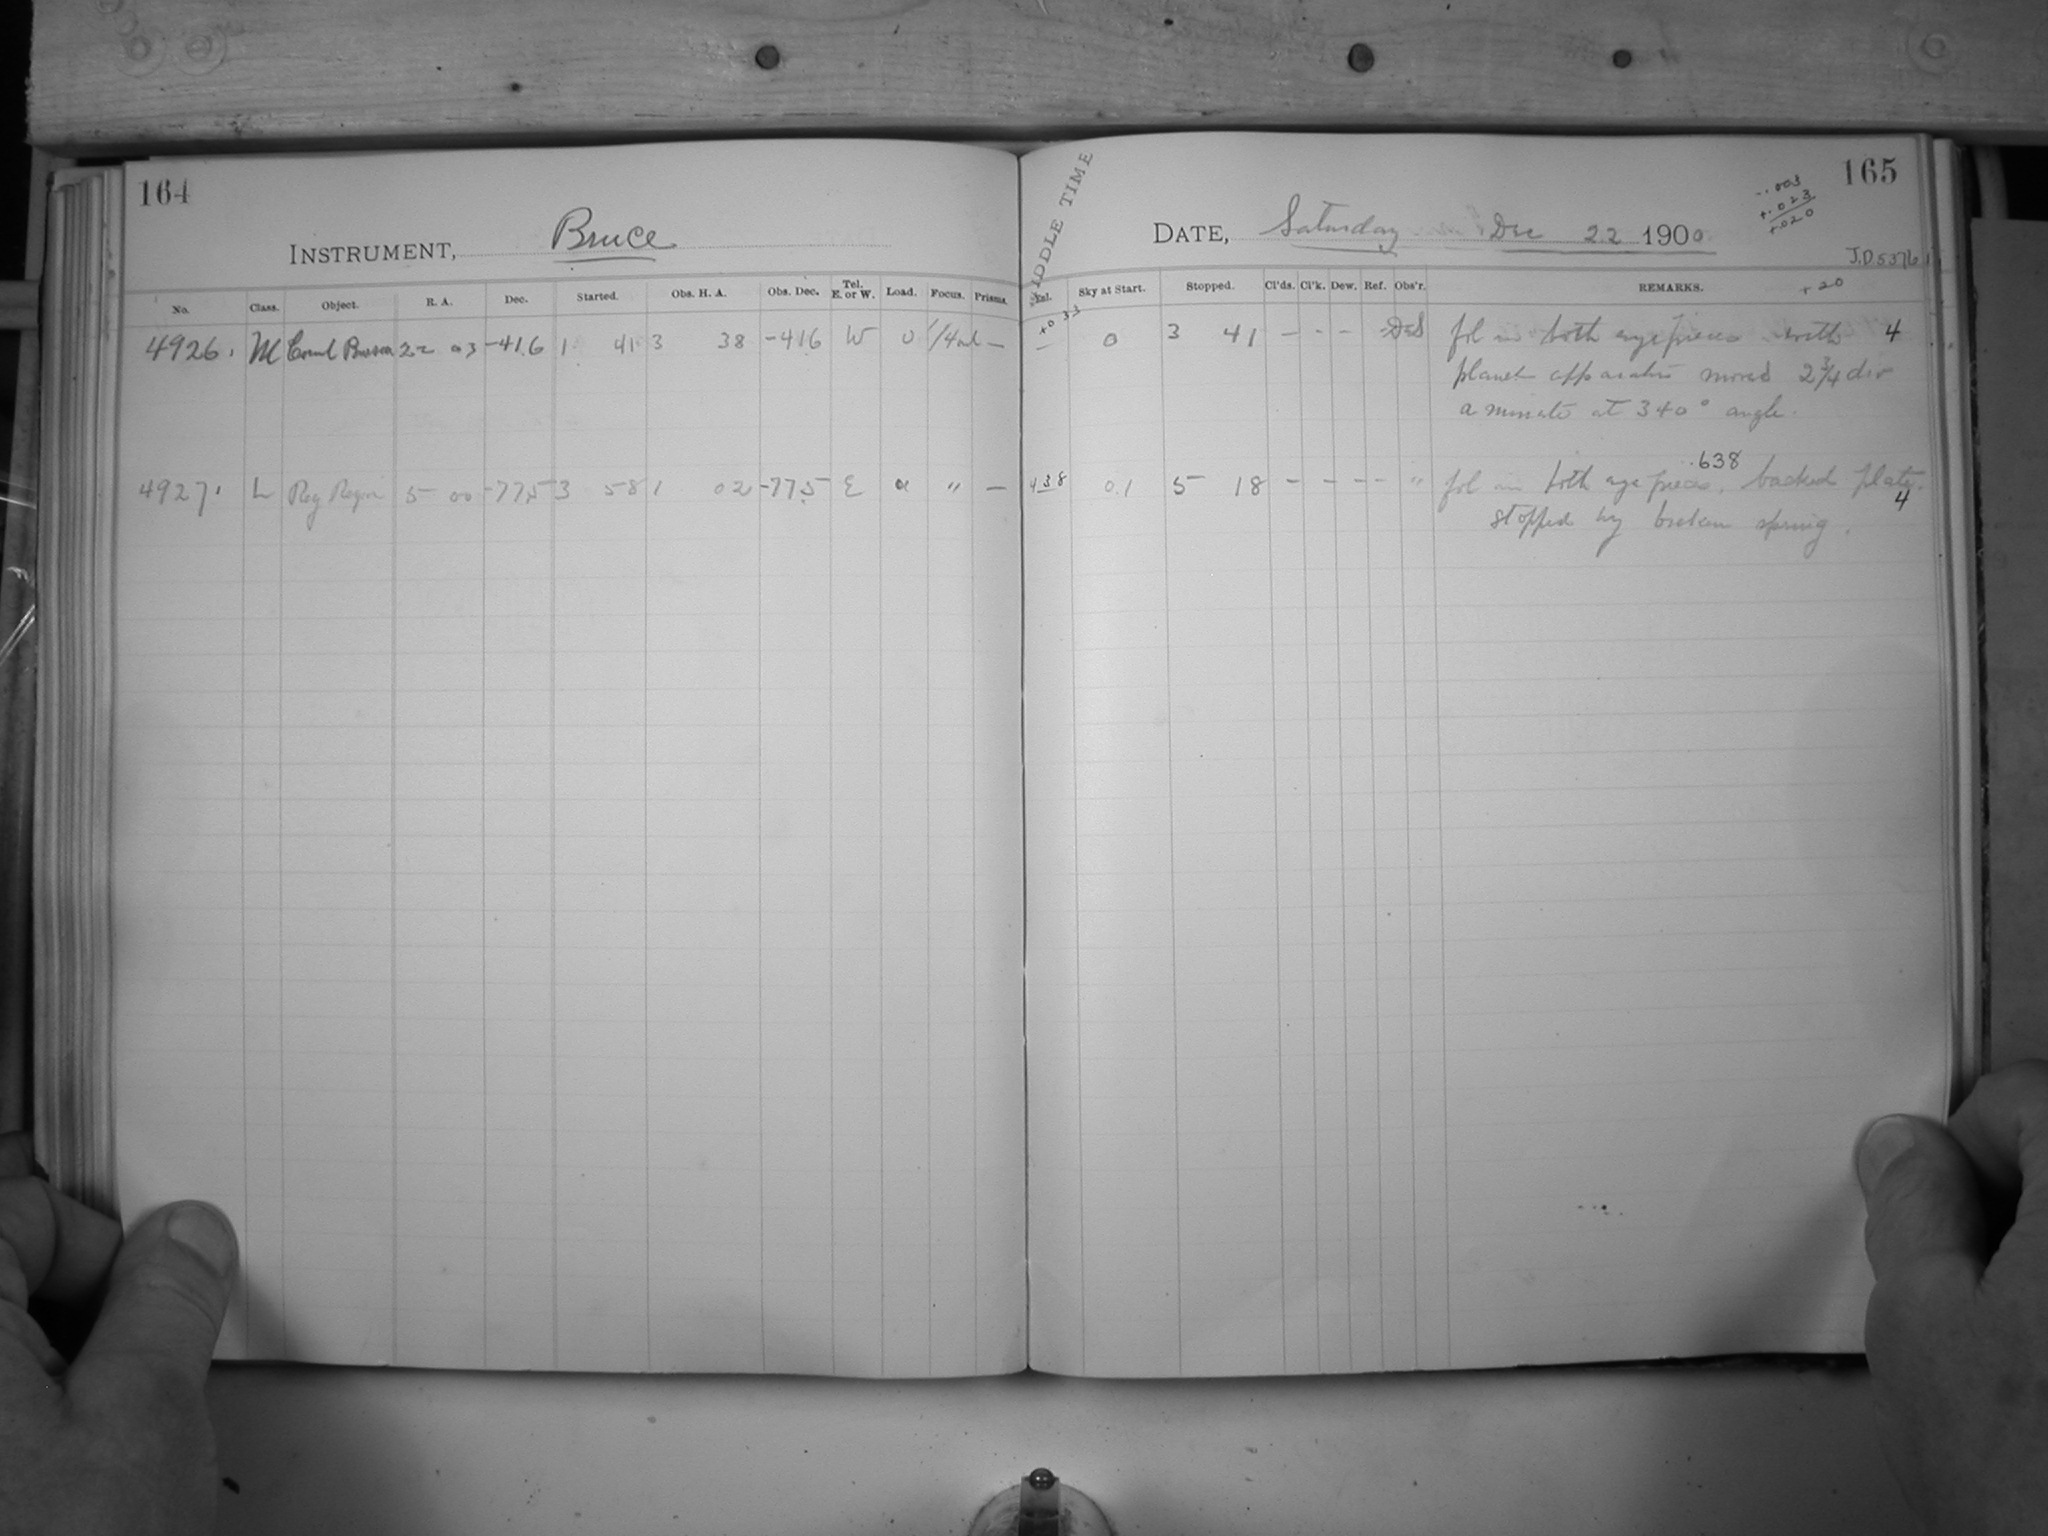 164
INSTRUMENT, Bruce
No. Class. Object. R. A. Dec. Started. Obs. H. A. Obs. Dec. Tel. E. or W. Load. Focus. Prisms.
4926. M 22 03 -41.6 1 41 3 38 -41.6 W 0 —
4927. L Reg Region 5 00 -77.5 3 58 1 02 -77.5 E " —
165
-.003
+.023
+.020
DATE, Saturday Dec 22 1900
J.D 5376
+20
Sky at Start. Stopped. Cl'ds. Cl'k. Dew. Ref. Obs'r. REMARKS.
+0 33
— 0 3 41 — - - fol in both eye pieces with 4
planet apparatus moved 2 3/4 div
a minute at 340° angle.
.638
438 0.1 5 18 - - - - " fol in both eye pieces. backed plate.
4
stopped by broken spring.